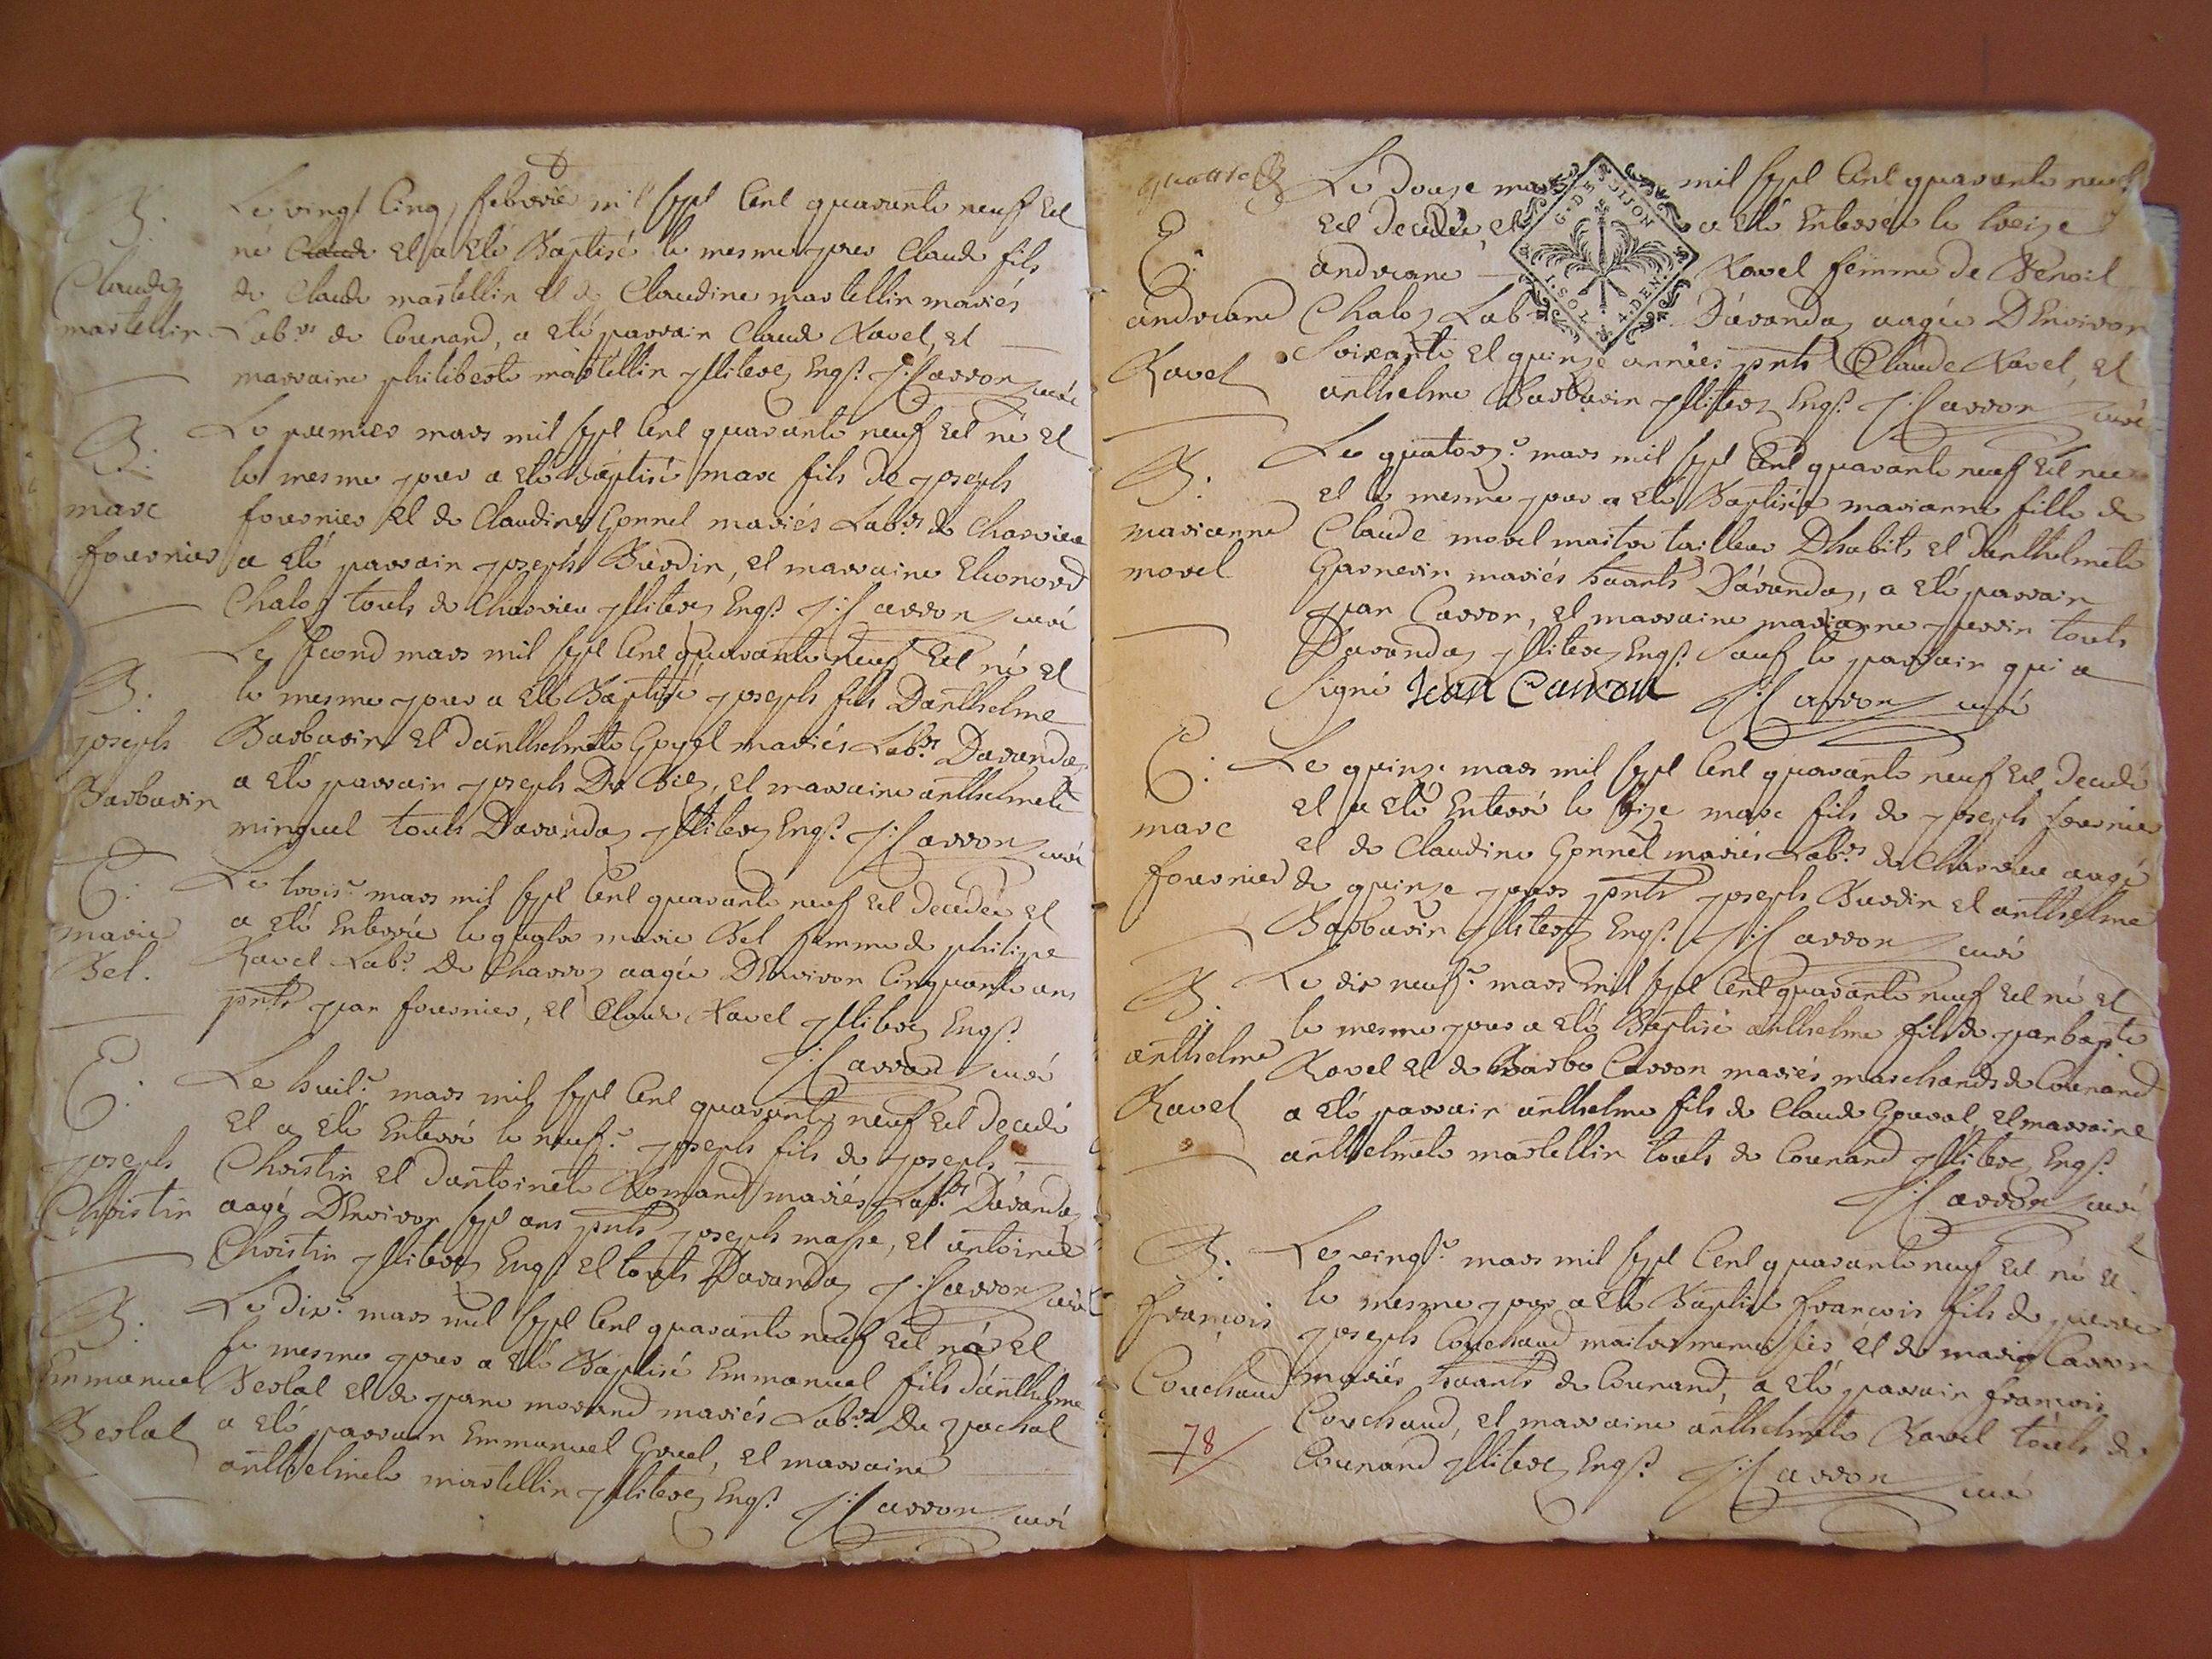 B.
Claude
martellin
Le vingt Cinq febvrié mil sept Cent quarante neuf est
né Claude et a eté Baptisé le mesme jour Claude fils
de Claude martellin et de Claudine martellin mariés
Labrs de Counand, a eté parrain Claude Ravel, et
marraine philiberte martellin illiterez Enqs. J: Carron curé
B.
marc
fournier
Le premier mars mil sept Cent quarante neuf est né et
le mesme jour a eté Baptisé marc fils de joseph
fournier et de Claudine Gonnet mariés Labrs de Charvieu
a eté parrain joseph Burdin, et marraine Eleonord
Chaley touts de Charvieu illiterez Enqs. J: Carron curé
B.
joseph
Barbarin
Le second mars mil sept Cent quarante neuf est né et
le mesme jour a eté Baptisé joseph fils Danthelme
Barbarin et danthelmette Goyet mariés Labrs. Davanday
a eté parrain joseph , et marraine anthelmete
minguet touts Davanday illiterez Enqs. J: Carron curé
E:
marie
Bel.
Le trois.e mars mil sept Cent quarante neuf est decedée et
a eté Enterrée le quatre marie Bel femme de philipe
Ravel Labr. De Charvoz aagée DEnviron Cinquante ans
pnts jean fournier, et Claude Ravel illiterez Enqs.
J: Carron curé
E:
joseph
Christin
Le huit.e mars mil sept Cent quarante neuf est decedé
et a eté Enterré le neuf.e joseph fils de joseph
Christin et dantoinete Romand mariés Labrs. Davanday
aagé DEnviron sept ans pnts joseph masse, et antoine
Christin illiterez Enqs et touts Davanday J: Carron curé
B.
Emmanuel
Berlat
Le dix.e mars mil sept Cent quarante neuf est né et
le mesme jour a eté Baptisé Emmanuel fils danthelme
Berlat et de jeane morand mariés Labrs De pochat
a eté parrain Emmanuel , et marraine
anthelmete martellin illiterez Enqs. J: Carron curé
quatre
E:
andreane
Ravel
Le douze mars mil sept Cent quarante neuf
est decedée, et a eté Enterrée le treize
andreane Ravel femme de Benoit
Chaley Labr. Davanday aagée DEnviron
Soixante et quinze années pnts Claude Ravel, et
anthelme Barbarin illiterez Enqs. J: Carron curé
G. D. DIJON
I. SOL. 4. DEN.
B.
marianne
morel
Le quatorz.e mars mil sept Cent quarante neuf est née
et le mesme jour a eté Baptisée marianne fille de
Claude morel maitre tailleur Dhabits et danthelmete
Garnerin mariés havants Davanday, a eté parrain
jean Carron, et marraine marianne perrin touts
Davanday illiterez Enqs. Sauf le parrain qui a
Signé Jean Carron J: Carron curé
E:
marc
fournier
Le quinz.e mars mil sept Cent quarante neuf est decedé
et a eté Enterré le seize marc fils de joseph fournier
et de Claudine Gonnet mariés Labrs. de Charvieu aagé
de quinze jours pnts joseph Burdin et anthelme
Barbarin illiterez Enqs. J: Carron curé
B.
anthelme
Ravel
Le dix neuf.e mars mil sept Cent quarante neuf est né et
le mesme jour a eté Baptisé anthelme fils de jean bapte
Ravel et de Barbe Carron mariés marchands de Counand
a eté parrain anthelme fils de Claude , et marraine
anthelmete martellin touts de Counand illiterez Enqs.
J: Carron curé
B.
françois
Couchaud
Le vingt.e mars mil sept Cent quarante neuf est né et
le mesme jour a eté Baptisé françois fils de pierre
joseph Couchaud maitre menuisier et de marie Carron
mariés havants de Counand, a eté parrain françois
Couchaud, et marraine anthelmete Ravel touts de
Counand illiterez Enqs. J: Carron curé
78